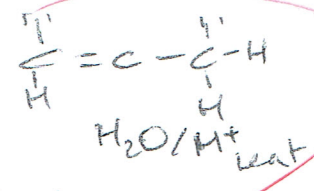 C = C - C - H
H H
H₂O/H⁺ heat